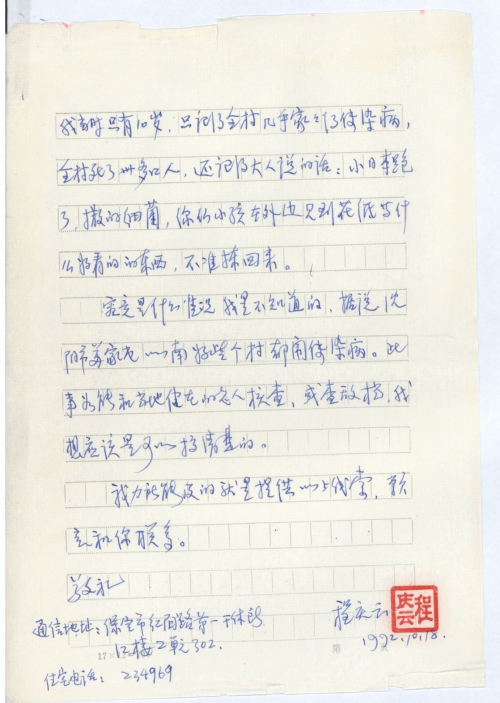 我当时只有10岁，只记得全村几乎家家得了传染病，
全村死了卅多口人，还记得大人说的话：小日本跑
了，撒的细菌，你们小孩在外边见到花低等什
么好看的的东西，不准拣回来。
究竟是什么情况我是不知道的，据说沈
以南好些个村都闹传染病。此
事如能和当地健在的老人核查，或查敌档，我
想应该是可以搞清楚的。
我力所能及的就是提供以上线索，
和你联系。
敬礼
程庆云
程庆云
1992.10.18.
通信地址：保定市红阳路第一干休所
12楼2单元302.
住宅电话：234969